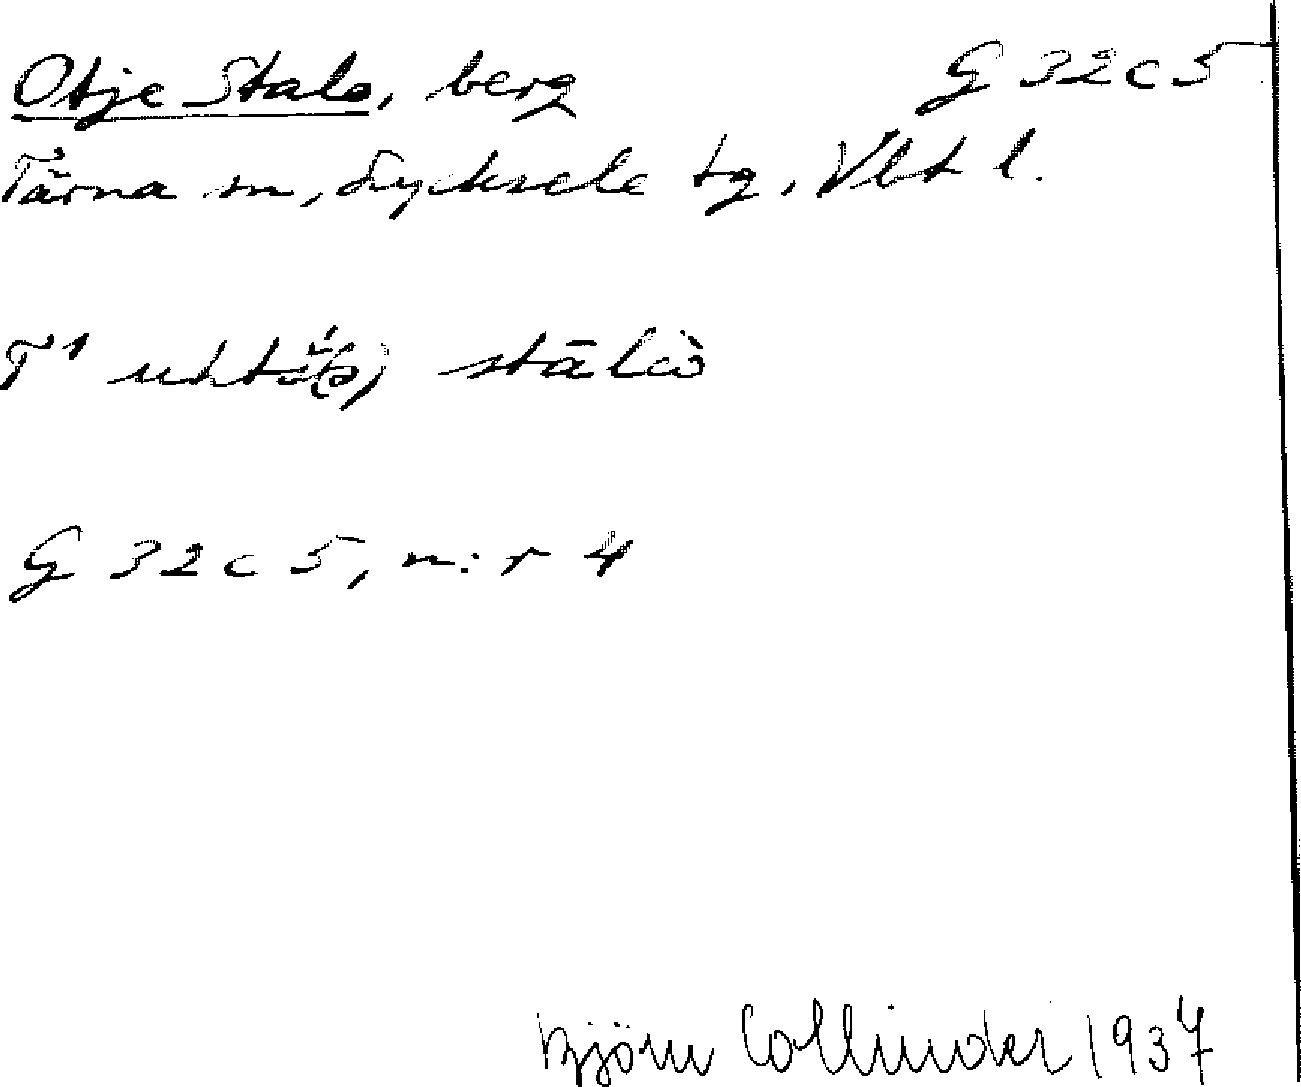 Otje Stalo, berg G 32 c 5
Tärna sn, Lycksele tg, Vbt l.
T¹ stālɷ̀
G 32 c 5, n:r 4
Björn Collinder 1937